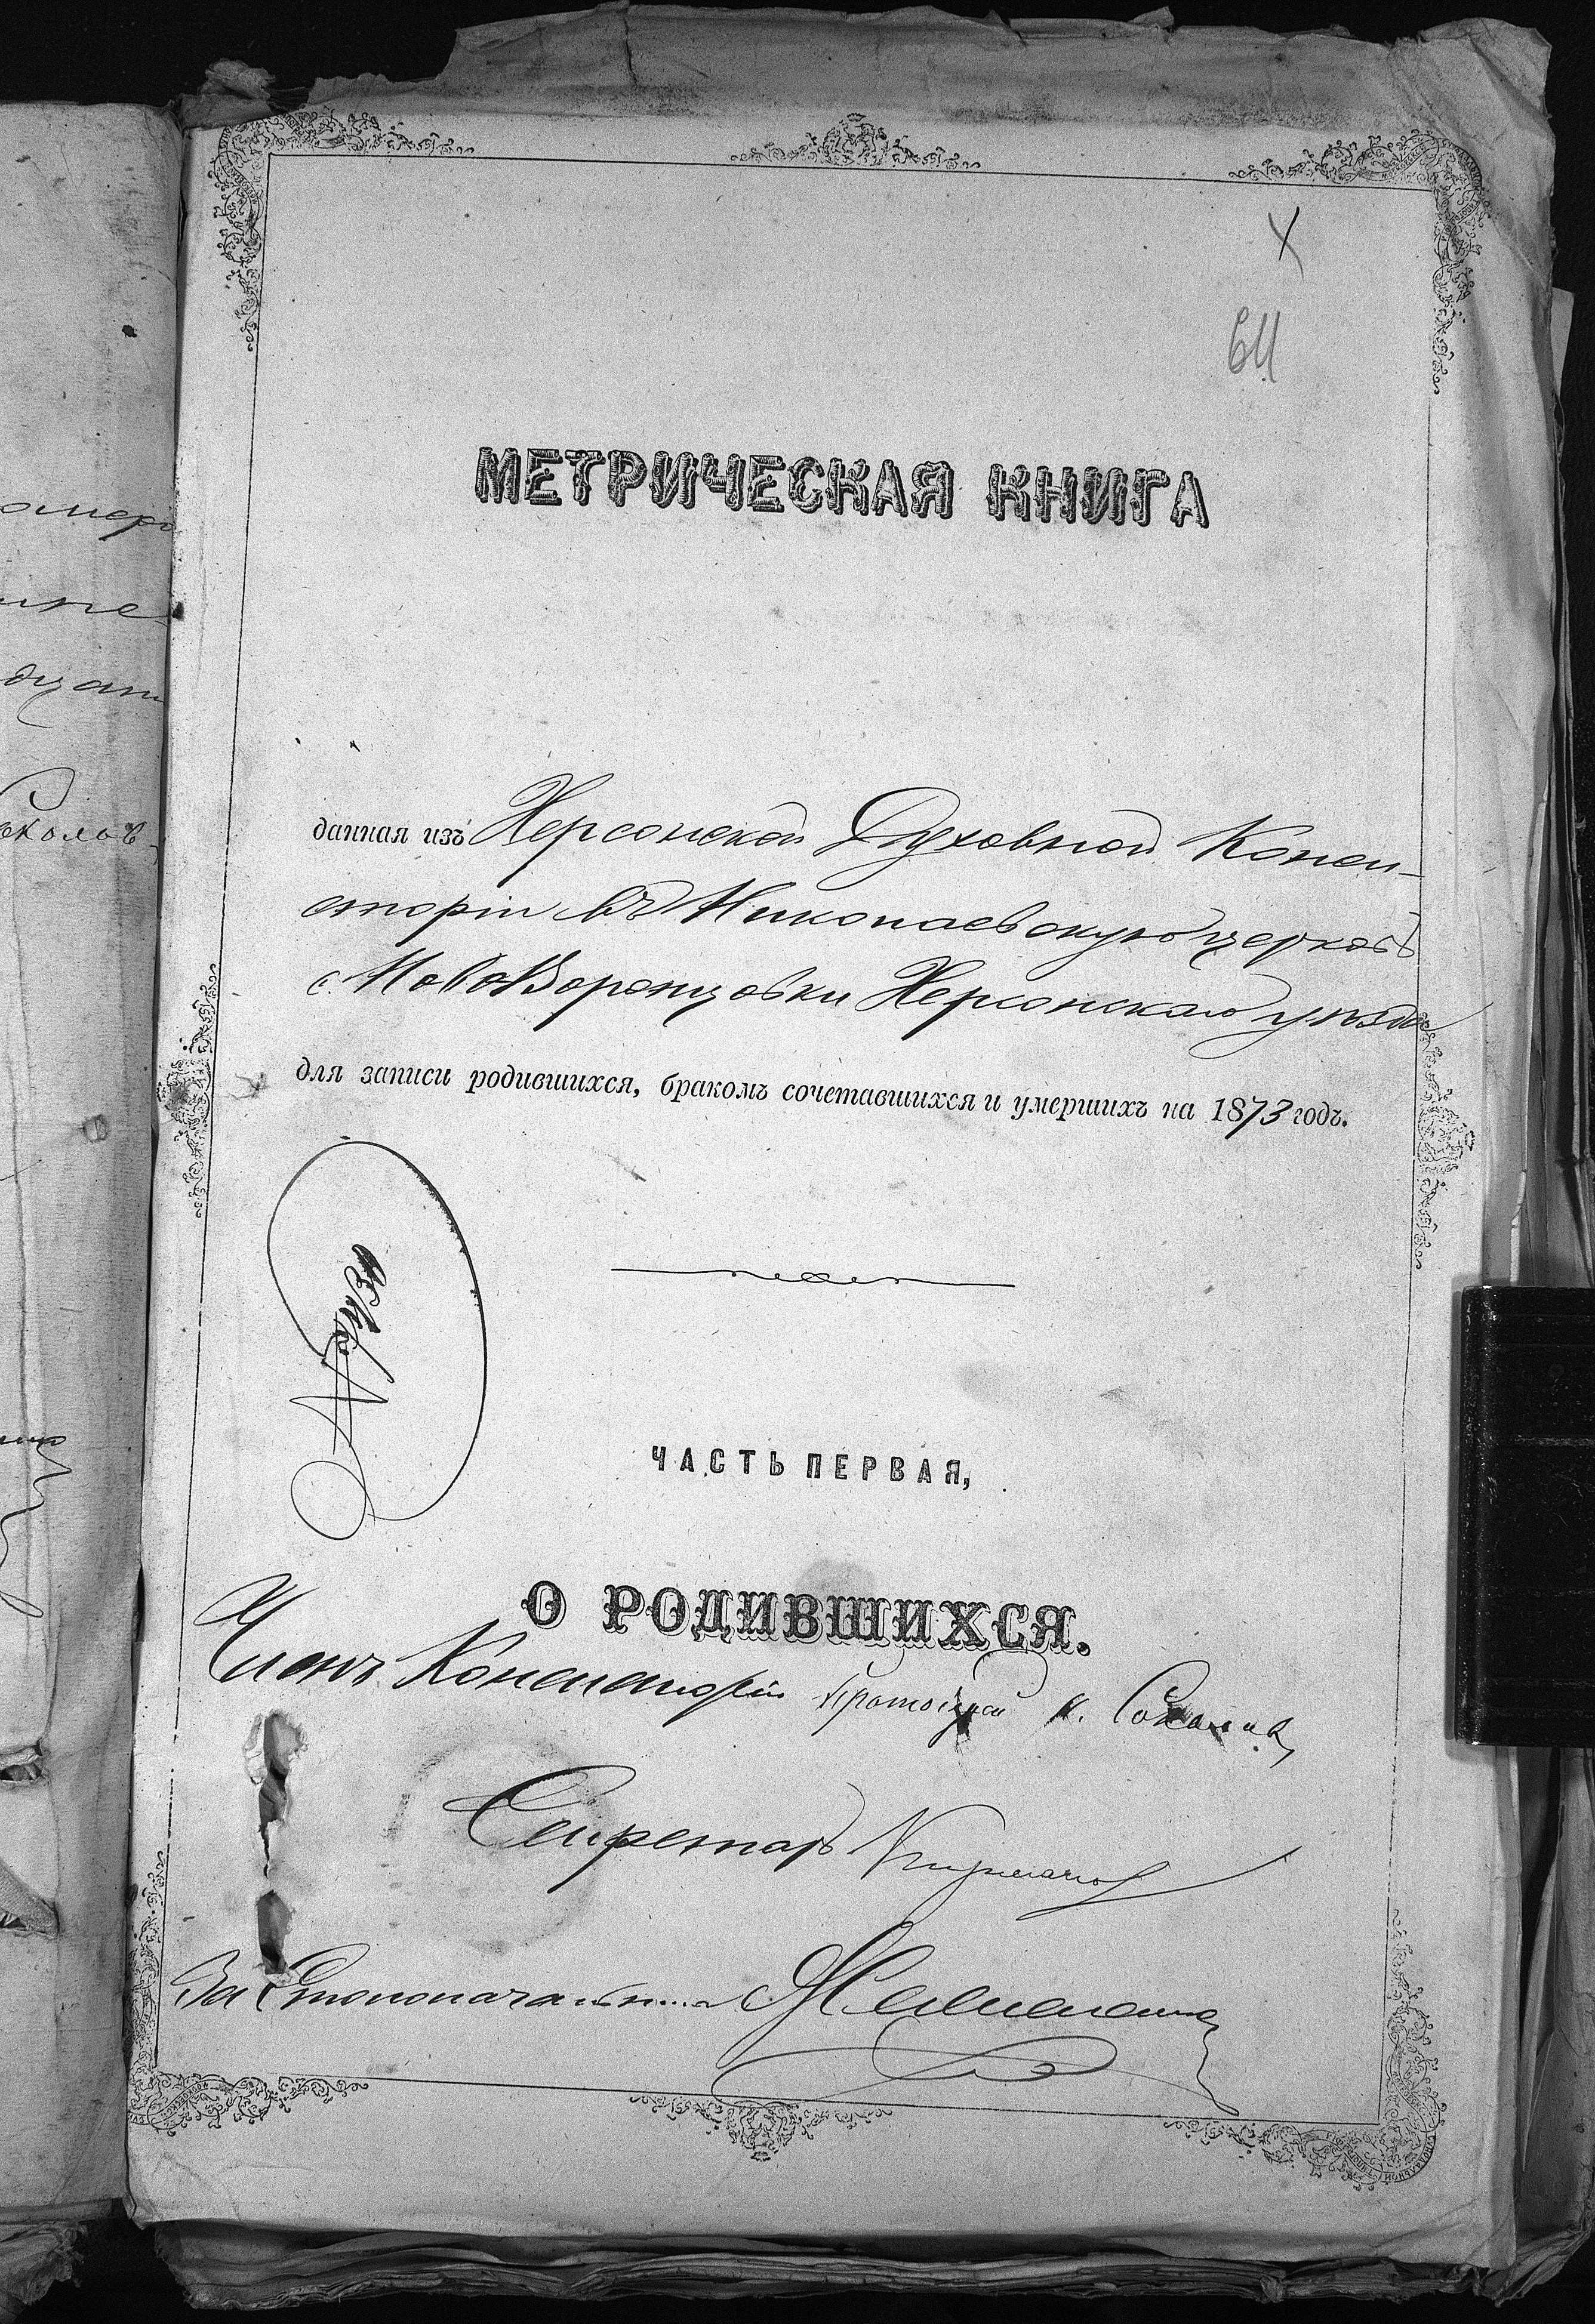 64
МЕТРИЧЕСКАЯ КНИГА
данная изъ Херсонской Духовной Конси-
сторіи въ Николаевскую церковь
с. НовоВоронцовки Херсонскаго уѣзда
для записи родившихся, бракомъ сочетавшихся и умершихъ на 1873 годъ.
ЧАСТЬ ПЕРВАЯ,
О РОДИВШИХСЯ.
Членъ Консисторіи Протоіерей Соколовъ
Секретарь
За Столоначальника